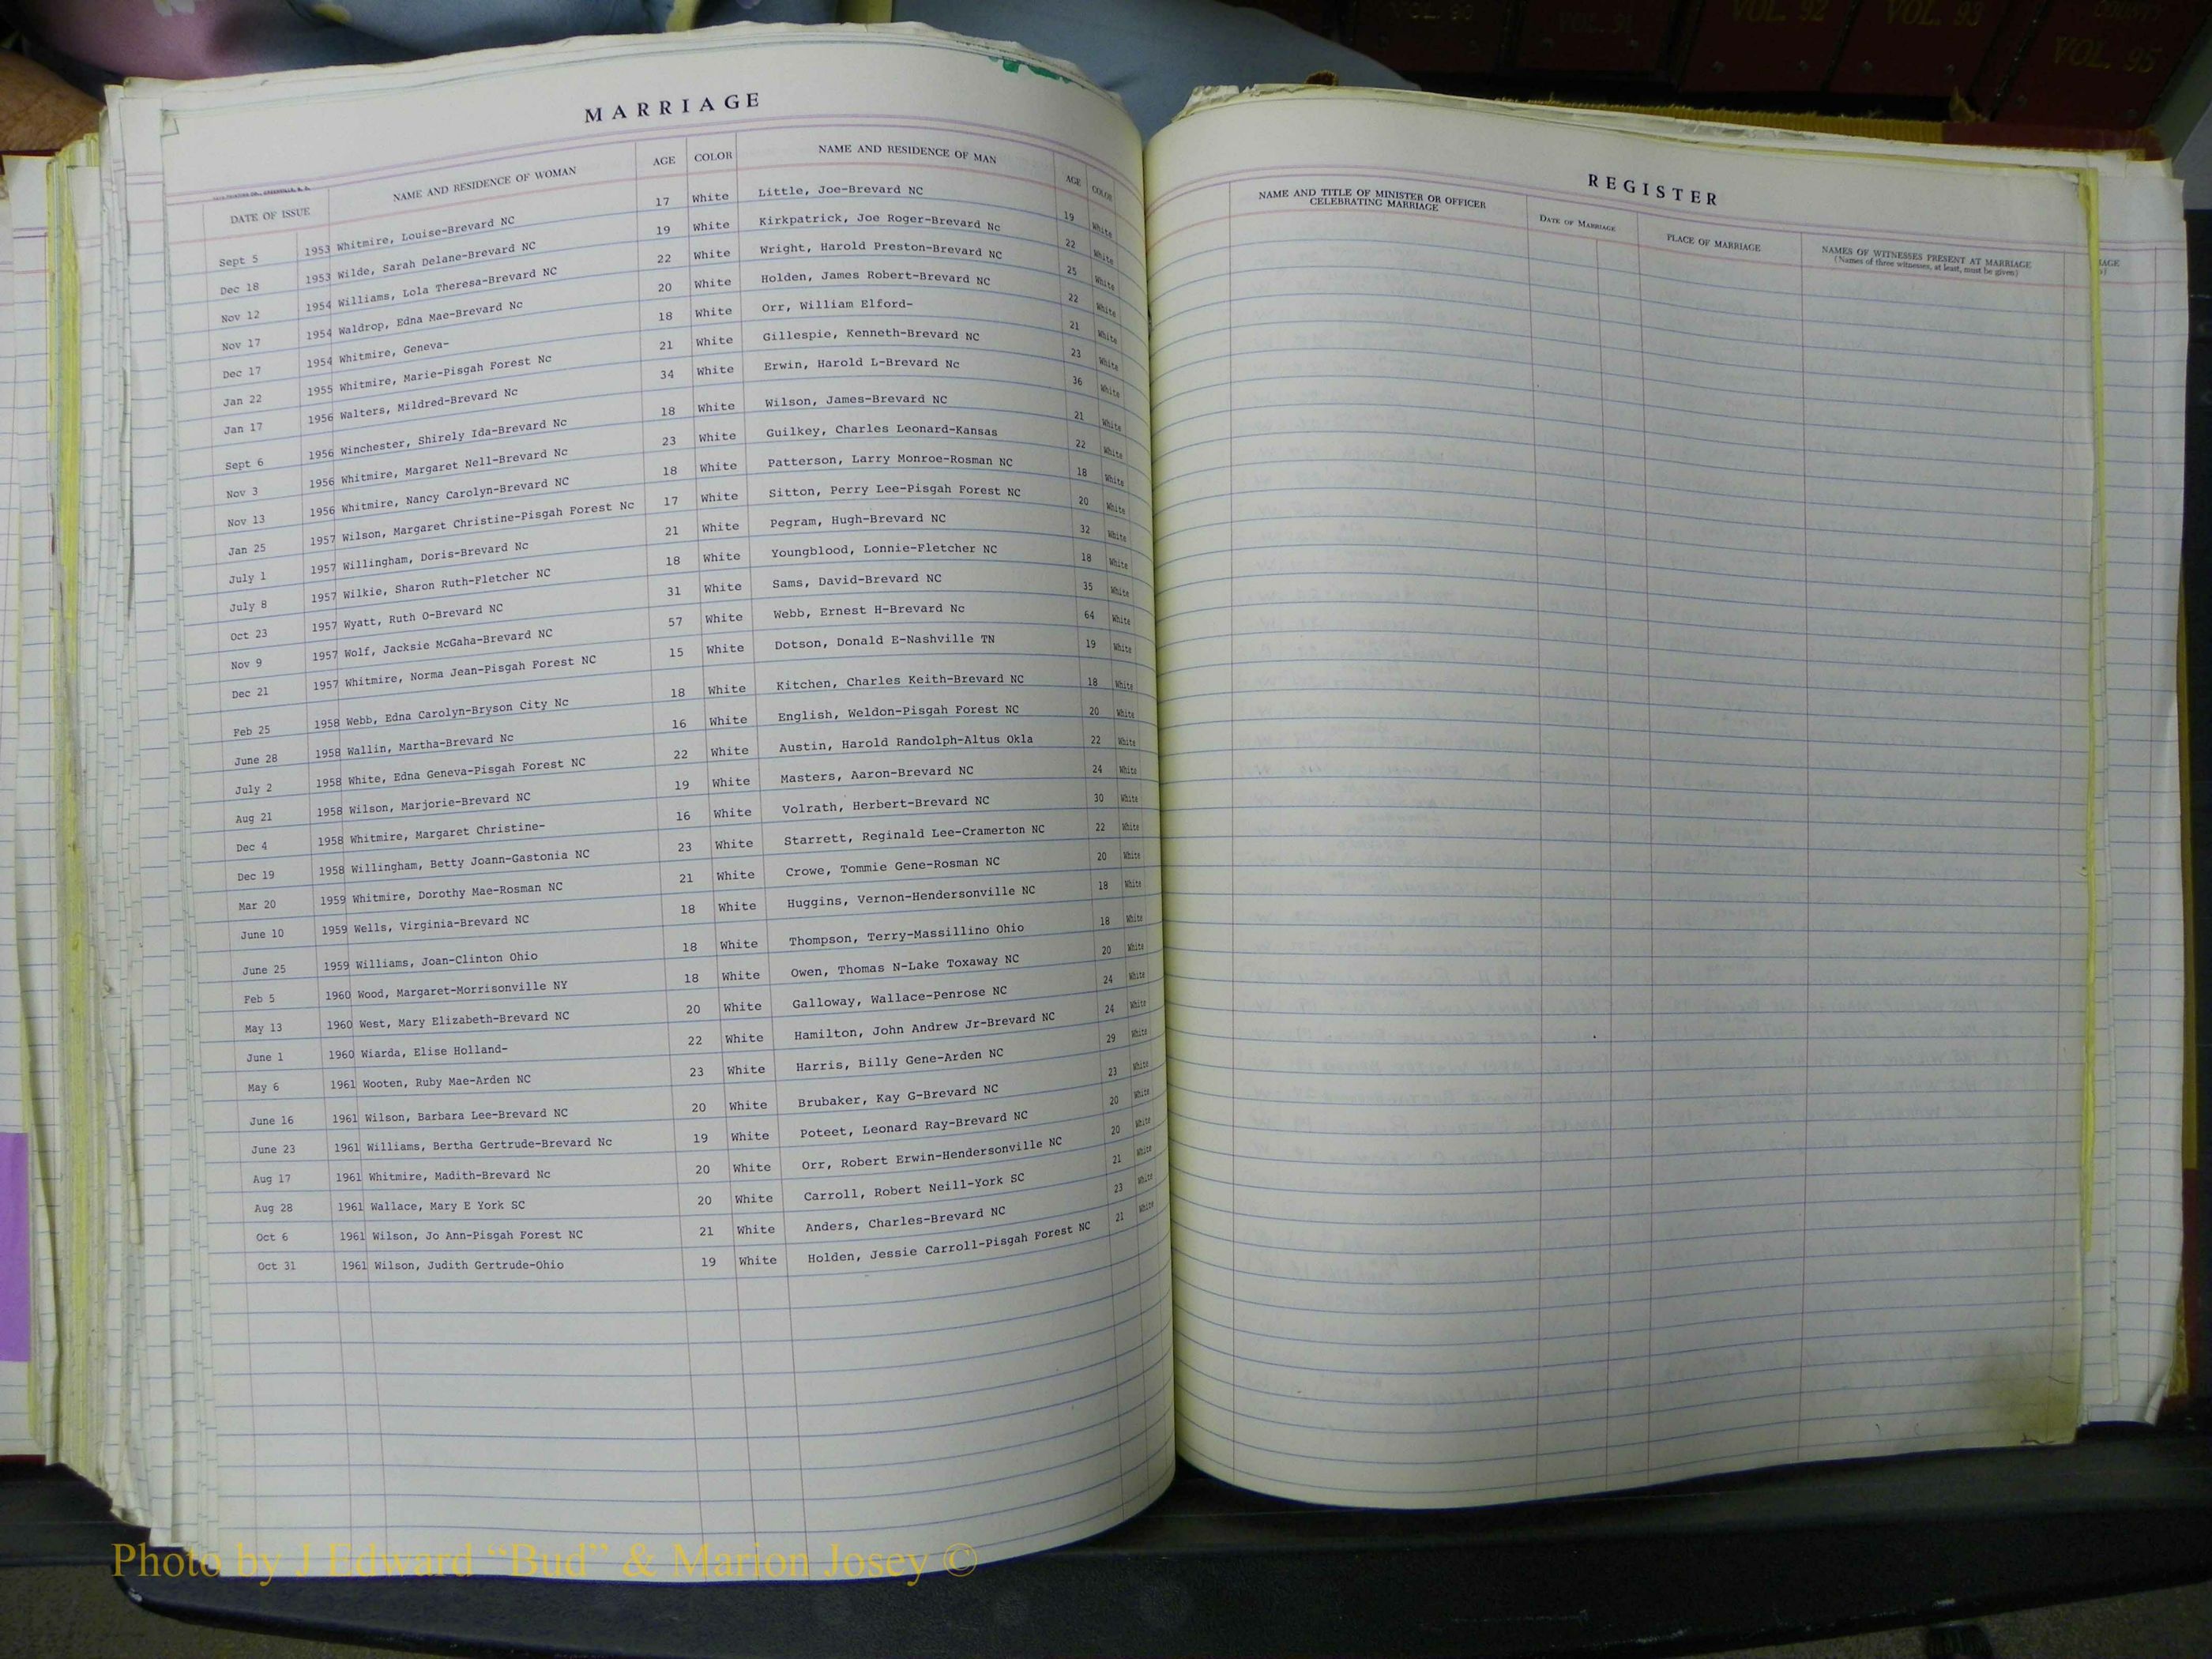 VOL. 90
VOL. 91
VOL. 92
VOL. 93
COUNTY
VOL. 95
MARRIAGE
DATE OF ISSUE NAME AND RESIDENCE OF WOMAN AGE COLOR NAME AND RESIDENCE OF MAN AGE COLOR
Sept 5 1953 Whitmire, Louise-Brevard NC 17 White Little, Joe-Brevard NC 19 White
Dec 18 1953 Wilde, Sarah Delane-Brevard NC 19 White Kirkpatrick, Joe Roger-Brevard Nc 22 White
Nov 12 1954 Williams, Lola Theresa-Brevard NC 22 White Wright, Harold Preston-Brevard NC 25 White
Nov 17 1954 Waldrop, Edna Mae-Brevard Nc 20 White Holden, James Robert-Brevard NC 22 White
Dec 17 1954 Whitmire, Geneva- 18 White Orr, William Elford- 21 White
Jan 22 1955 Whitmire, Marie-Pisgah Forest Nc 21 White Gillespie, Kenneth-Brevard NC 23 White
Jan 17 1956 Walters, Mildred-Brevard Nc 34 White Erwin, Harold L-Brevard Nc 36 White
Sept 6 1956 Winchester, Shirely Ida-Brevard Nc 18 White Wilson, James-Brevard NC 21 White
Nov 3 1956 Whitmire, Margaret Nell-Brevard Nc 23 White Guilkey, Charles Leonard-Kansas 22 White
Nov 13 1956 Whitmire, Nancy Carolyn-Brevard NC 18 White Patterson, Larry Monroe-Rosman NC 18 White
Jan 25 1957 Wilson, Margaret Christine-Pisgah Forest Nc 17 White Sitton, Perry Lee-Pisgah Forest NC 20 White
July 1 1957 Willingham, Doris-Brevard Nc 21 White Pegram, Hugh-Brevard NC 32 White
July 8 1957 Wilkie, Sharon Ruth-Fletcher NC 18 White Youngblood, Lonnie-Fletcher NC 18 White
Oct 23 1957 Wyatt, Ruth O-Brevard NC 31 White Sams, David-Brevard NC 35 White
Nov 9 1957 Wolf, Jacksie McGaha-Brevard NC 57 White Webb, Ernest H-Brevard Nc 64 White
Dec 21 1957 Whitmire, Norma Jean-Pisgah Forest NC 15 White Dotson, Donald E-Nashville TN 19 White
Feb 25 1958 Webb, Edna Carolyn-Bryson City Nc 18 White Kitchen, Charles Keith-Brevard NC 18 White
June 28 1958 Wallin, Martha-Brevard Nc 16 White English, Weldon-Pisgah Forest NC 20 White
July 2 1958 White, Edna Geneva-Pisgah Forest NC 22 White Austin, Harold Randolph-Altus Okla 22 White
Aug 21 1958 Wilson, Marjorie-Brevard NC 19 White Masters, Aaron-Brevard NC 24 White
Dec 4 1958 Whitmire, Margaret Christine- 16 White Volrath, Herbert-Brevard NC 30 White
Dec 19 1958 Willingham, Betty Joann-Gastonia NC 23 White Starrett, Reginald Lee-Cramerton NC 22 White
Mar 20 1959 Whitmire, Dorothy Mae-Rosman NC 21 White Crowe, Tommie Gene-Rosman NC 20 White
June 10 1959 Wells, Virginia-Brevard NC 18 White Huggins, Vernon-Hendersonville NC 18 White
June 25 1959 Williams, Joan-Clinton Ohio 18 White Thompson, Terry-Massillino Ohio 18 White
Feb 5 1960 Wood, Margaret-Morrisonville NY 18 White Owen, Thomas N-Lake Toxaway NC 20 White
May 13 1960 West, Mary Elizabeth-Brevard NC 20 White Galloway, Wallace-Penrose NC 24 White
June 1 1960 Wiarda, Elise Holland- 22 White Hamilton, John Andrew Jr-Brevard NC 24 White
May 6 1961 Wooten, Ruby Mae-Arden NC 23 White Harris, Billy Gene-Arden NC 29 White
June 16 1961 Wilson, Barbara Lee-Brevard NC 20 White Brubaker, Kay G-Brevard NC 23 White
June 23 1961 Williams, Bertha Gertrude-Brevard Nc 19 White Poteet, Leonard Ray-Brevard NC 20 White
Aug 17 1961 Whitmire, Madith-Brevard Nc 20 White Orr, Robert Erwin-Hendersonville NC 20 White
Aug 28 1961 Wallace, Mary E York SC 20 White Carroll, Robert Neill-York SC 21 White
Oct 6 1961 Wilson, Jo Ann-Pisgah Forest NC 21 White Anders, Charles-Brevard NC 23 White
Oct 31 1961 Wilson, Judith Gertrude-Ohio 19 White Holden, Jessie Carroll-Pisgah Forest NC 21 White
REGISTER
NAME AND TITLE OF MINISTER OR OFFICER CELEBRATING MARRIAGE DATE OF MARRIAGE PLACE OF MARRIAGE NAMES OF WITNESSES PRESENT AT MARRIAGE
(Names of three witnesses, at least, must be given)
Photo by J Edward “Bud” & Marion Josey ©